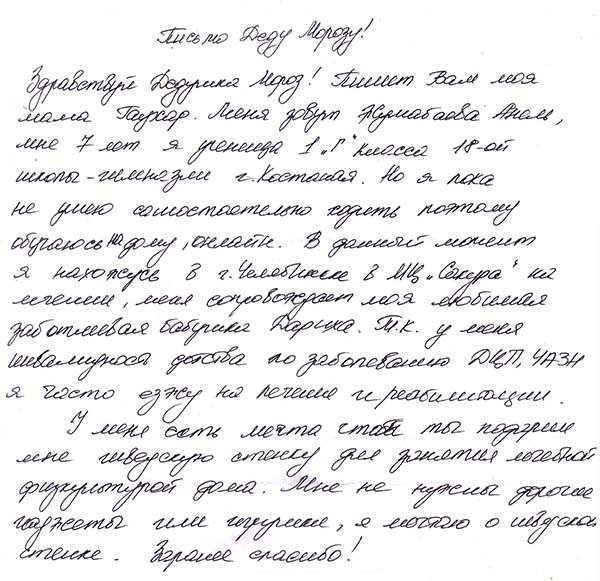 Письмо Деду Морозу!
Здравствуй Дедушка Мороз! Пишет Вам моя
мама Гаухар. Меня зовут Жумабаева Анель,
мне 7 лет я ученица 1 „Г" класса 18-ой
школы-гимназии г. Костаная. Но я пока
не умею самостоятельно ходить поэтому
обучаюсь на дому, онлайн. В данный момент
я нахожусь в г. Челябинске в МЦ „Сакура" на
лечении, меня сопровождает моя любимая
заботливая бабушка Дариха. Т.к. у меня
инвалидность детства по заболеванию ДЦП, ЧАЗН
я часто езжу на лечение и реабилитации.
У меня есть мечта чтобы ты подарил
мне шведскую стенку для занятия лечебной
физкультурой дома. Мне не нужны дорогие
гаджеты или игрушки, я мечтаю о шведской
стенке. Заранее спасибо!